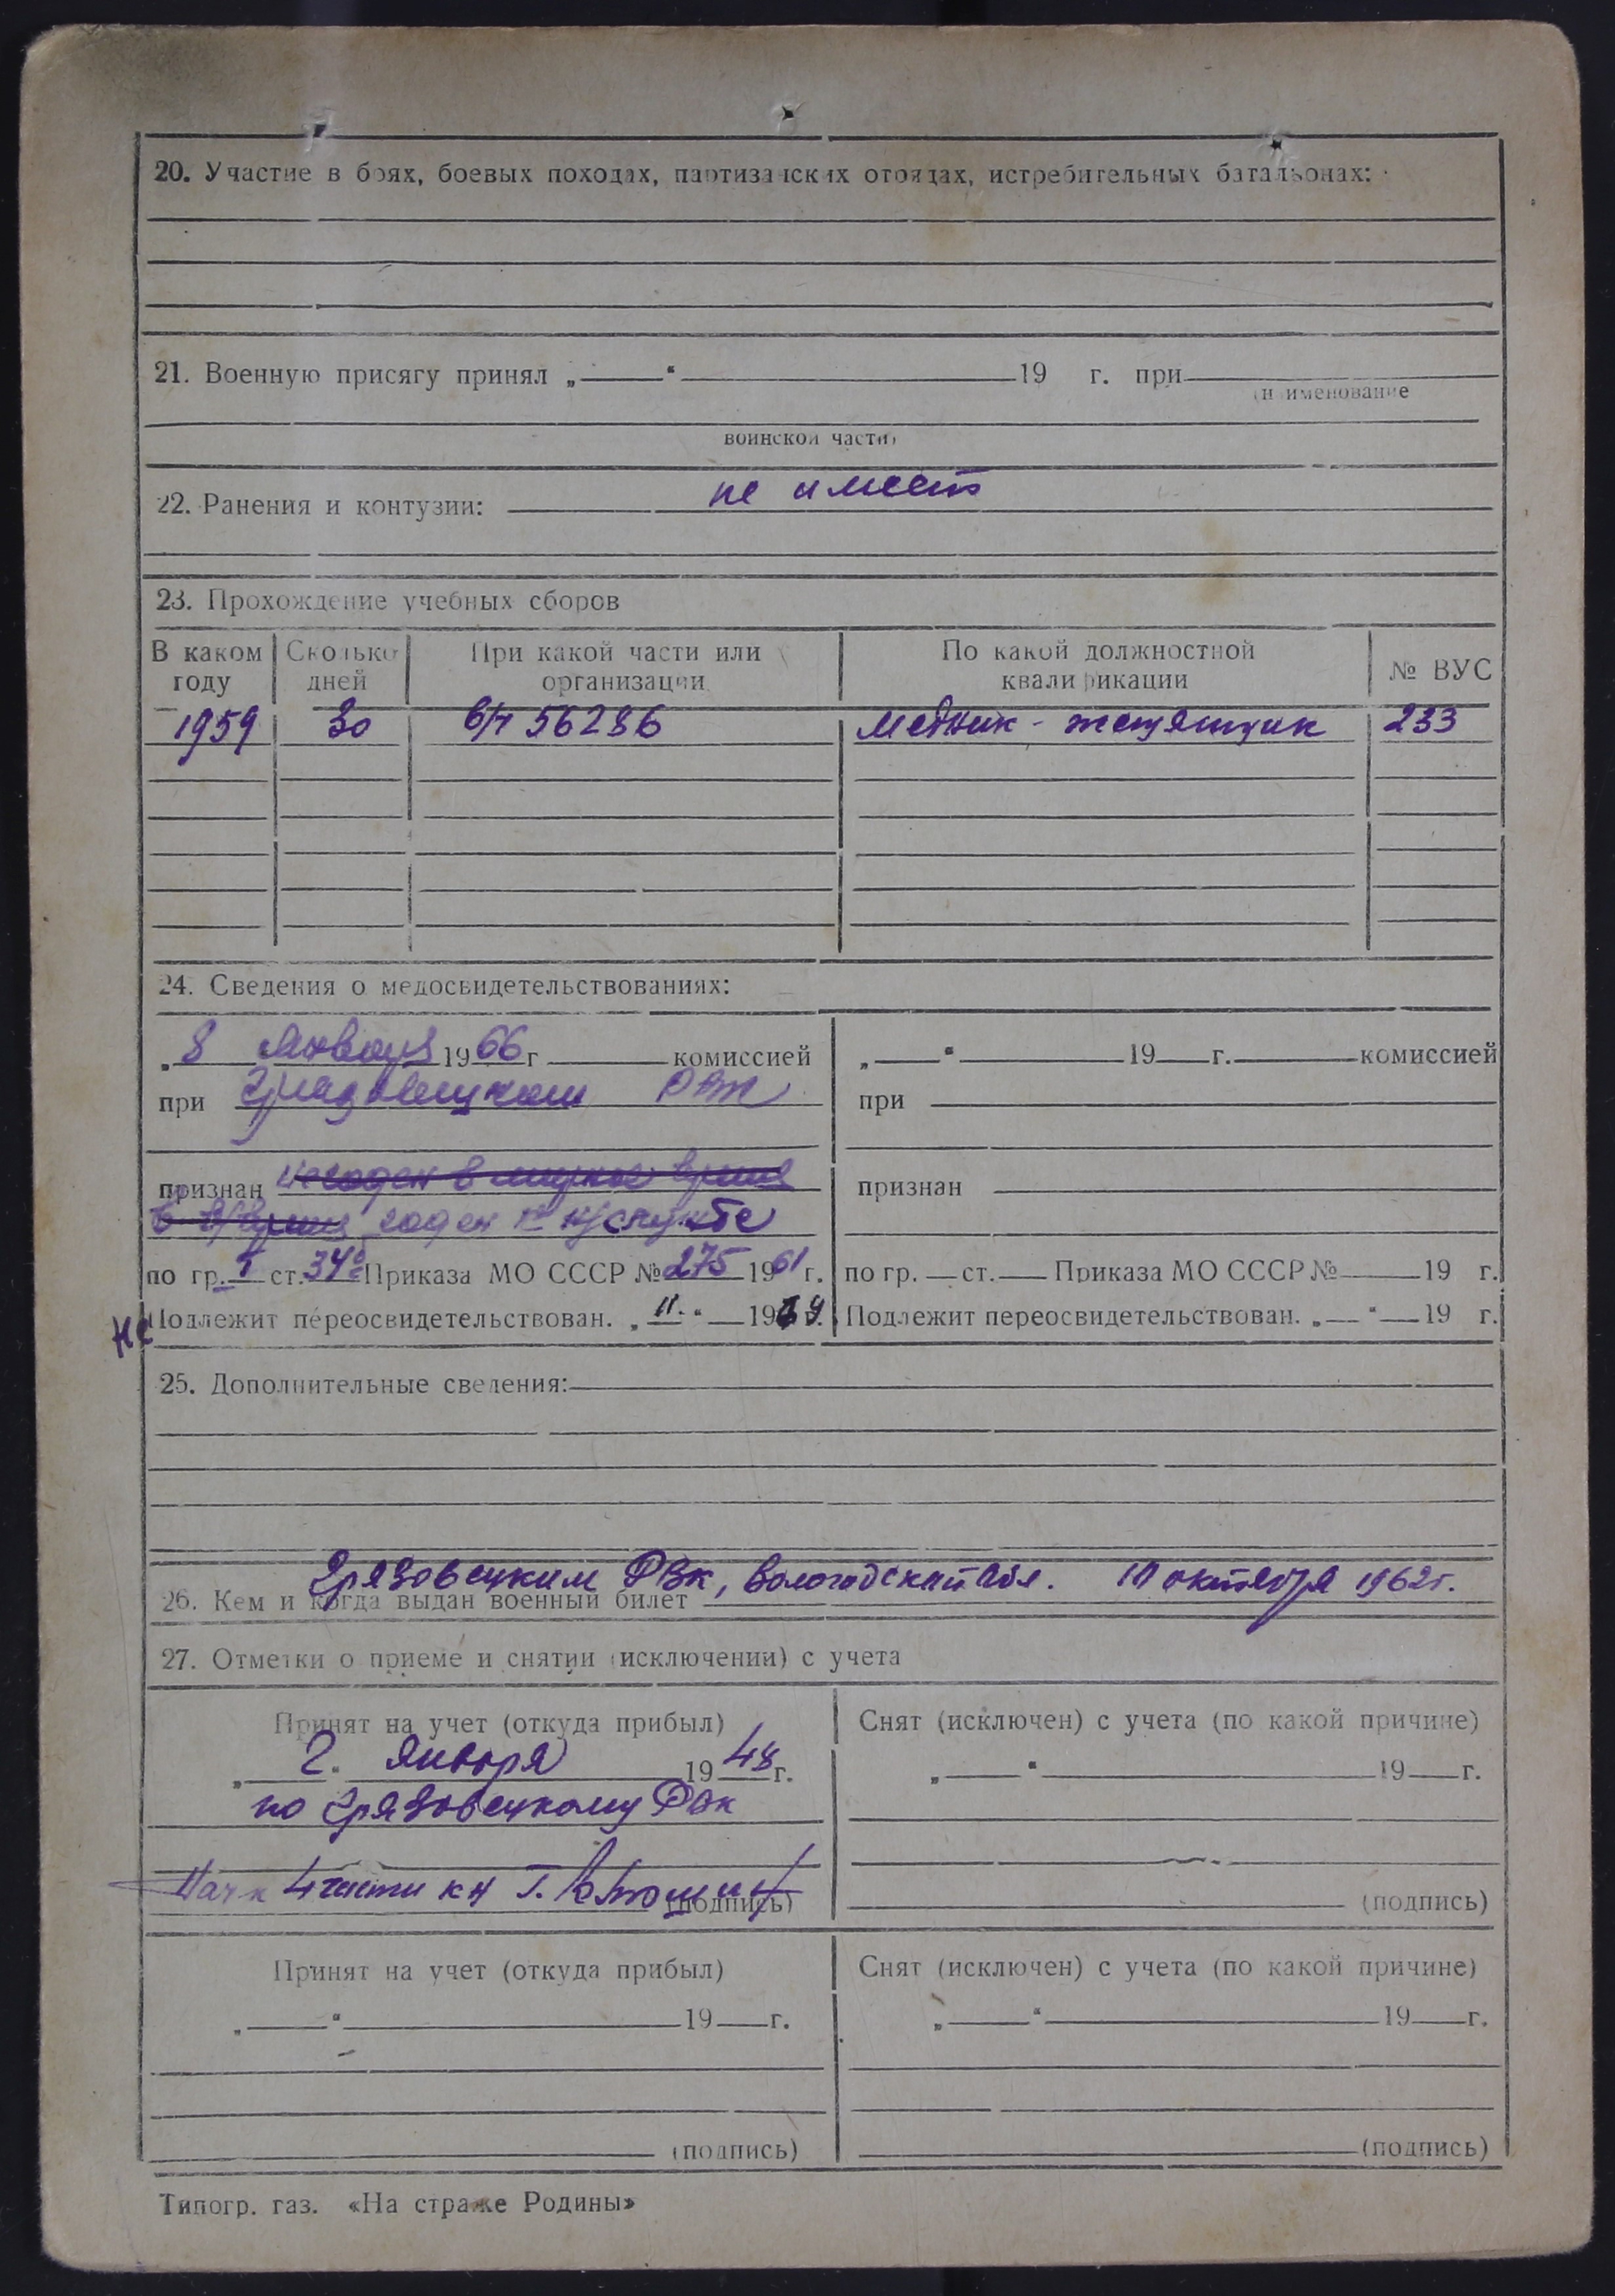 20. Участие в боях, боевых походах, партизанских отрядах, истребительных батальонах:
21. Военную присягу принял „——“ —— 19 г. при
(наименование
воинской части)
не имеет
22. Ранения и контузии:
23. Прохождение учебных сборов
В каком году Сколько дней При какой части или организации По какой должностной квалификации № ВУС
1959 30 в/ч 56286 медник - жестянщик 233
24. Сведения о медосвидетельствованиях:
„8 января 1966 г. —— комиссией „——“ —— 19——г. —— комиссией
при Грязовецком РВК при
признан негоден в мирное время признан
в в/время годен к н/службе
по гр. I ст. 34 Приказа МО СССР № 275 1961 г. по гр. — ст. — Приказа МО СССР № —— 19 г.
Не Подлежит переосвидетельствован. „ “ — 19 г. Подлежит переосвидетельствован. „—“ — 19 г.
25. Дополнительные сведения:
Грязовецким РВК, Вологодской обл. 10 октября 1962 г.
26. Кем и когда выдан военный билет
27. Отметки о приеме и снятии (исключении) с учета
Принят на учет (откуда прибыл) Снят (исключен) с учета (по какой причине)
„ 2 “ января 1948 г. „——“ —— 19——г.
по Грязовецкому РВК
Нач 4 части к-н
(подпись) (подпись)
Принят на учет (откуда прибыл) Снят (исключен) с учета (по какой причине)
„——“ —— 19——г. „——“ —— 19——г.
(подпись) (подпись)
Типогр. газ. «На страже Родины»